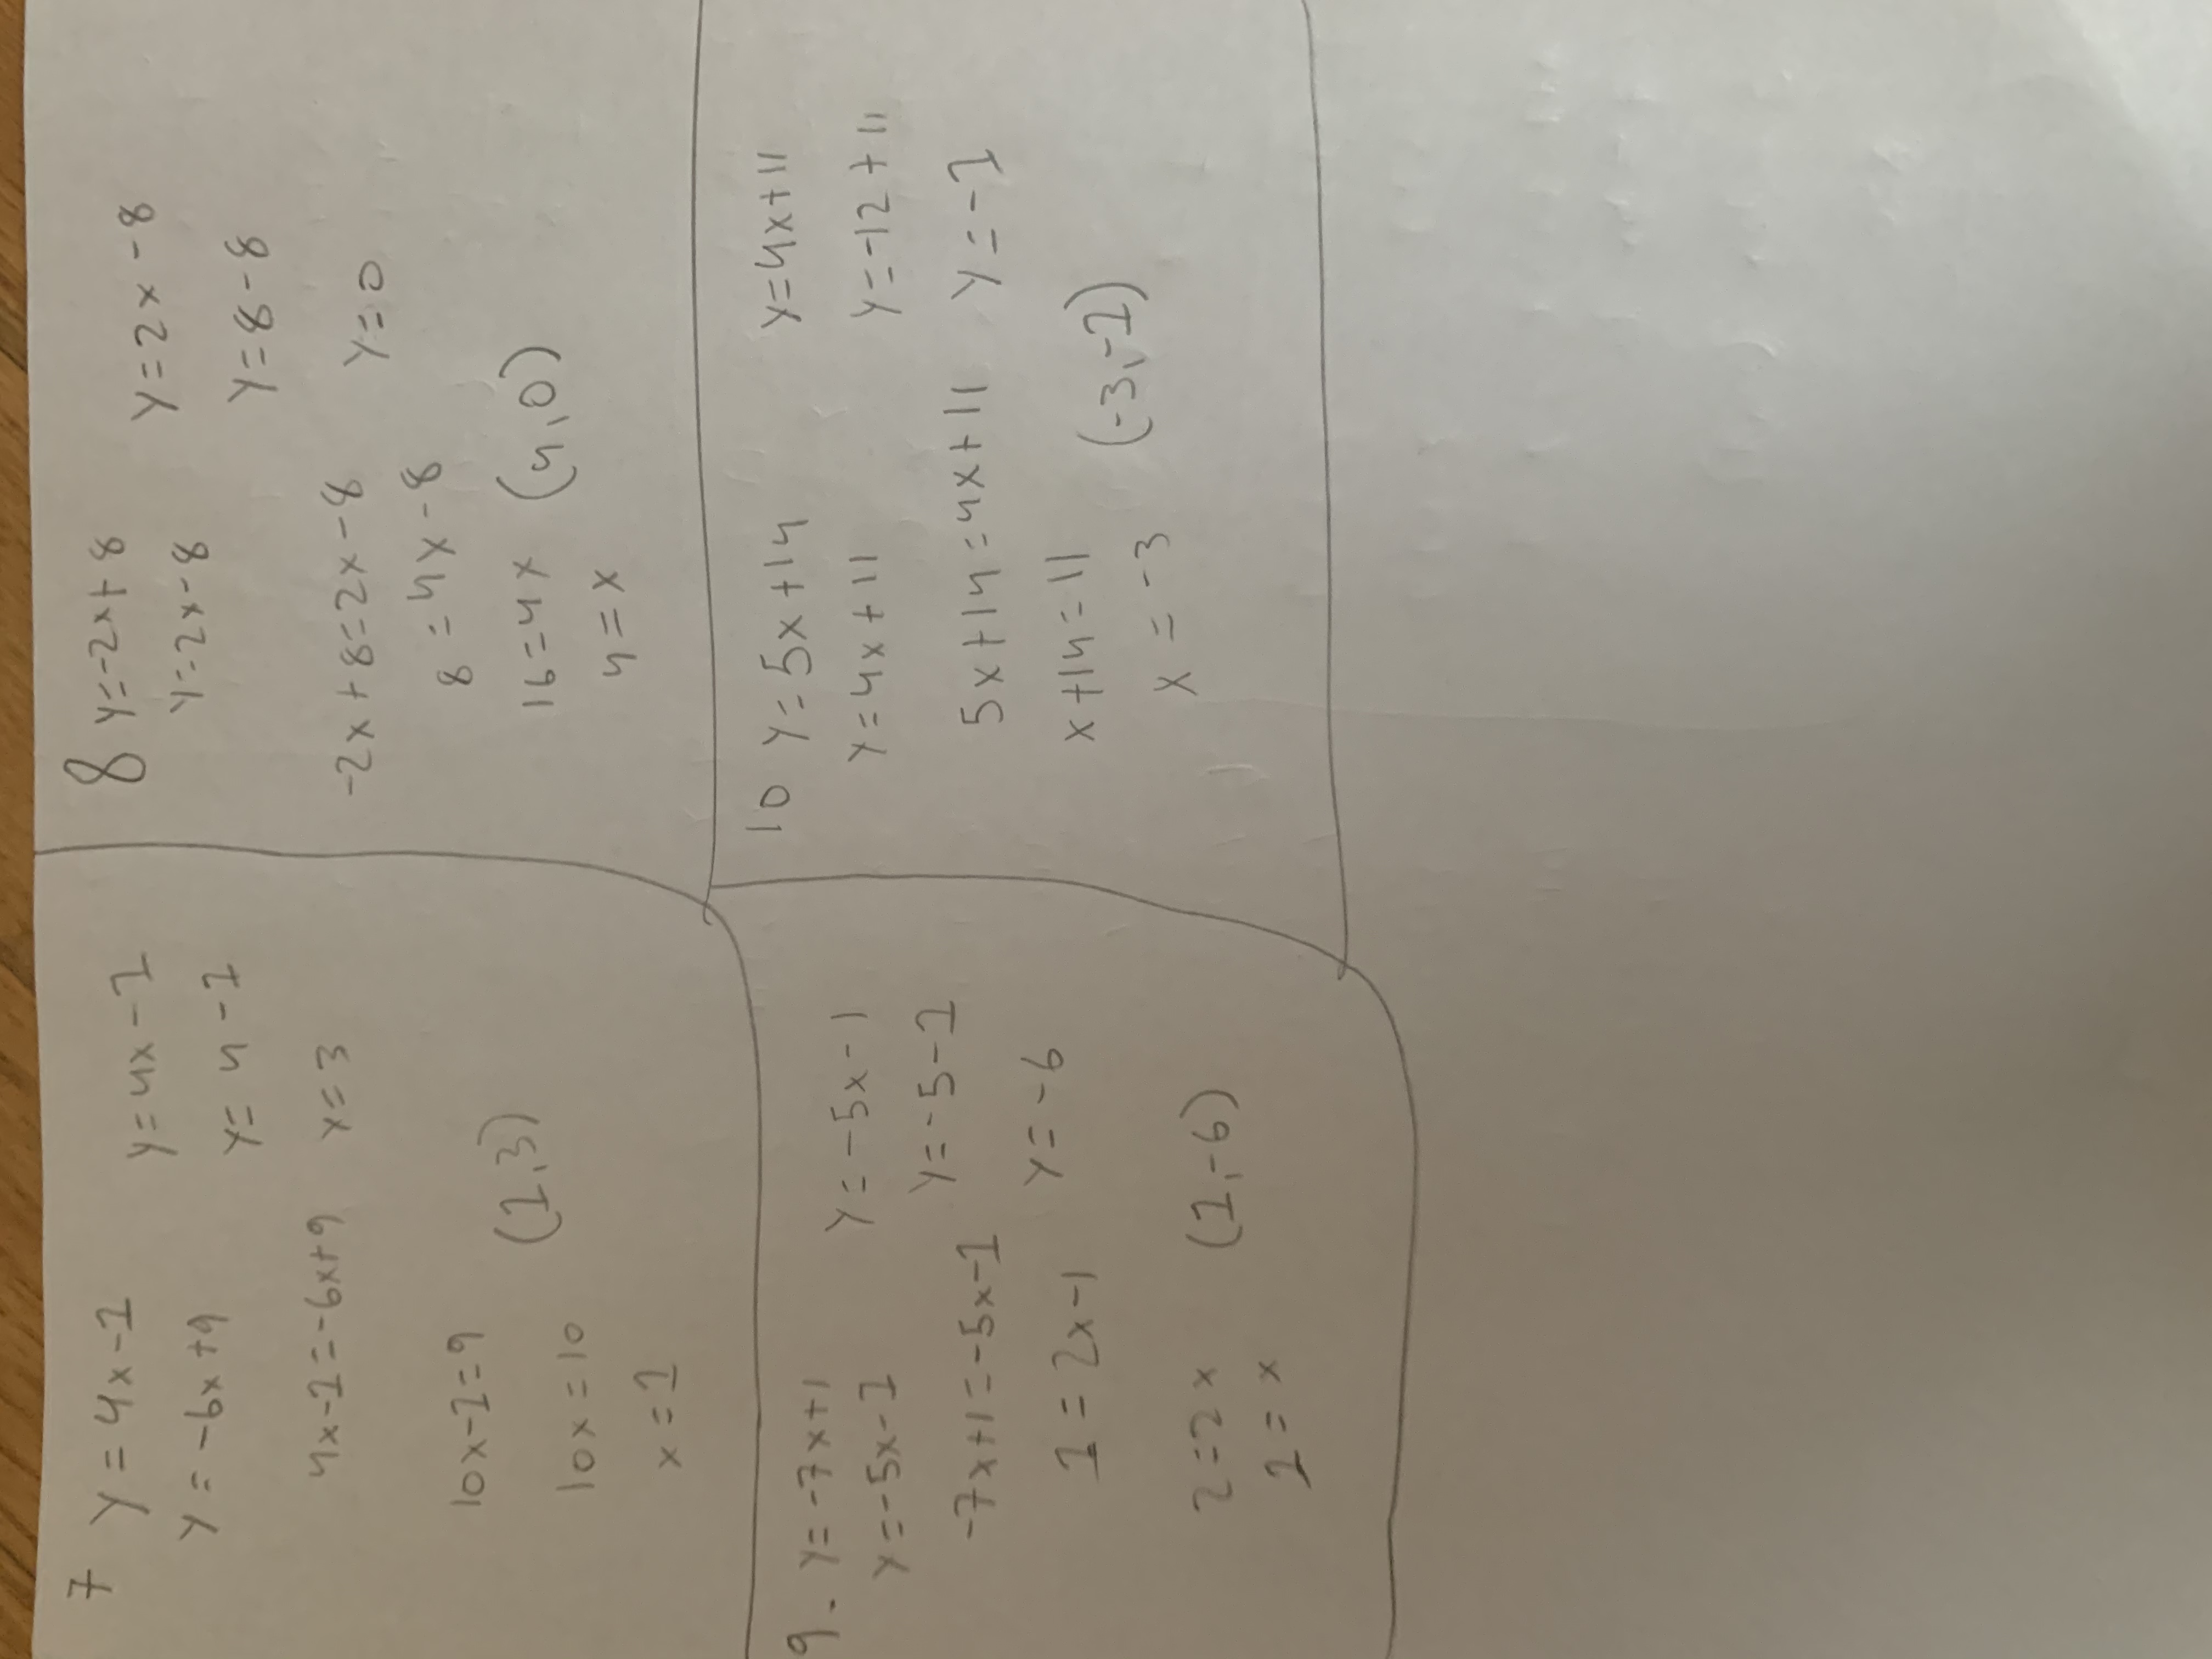 7
y = 4x-1
y = -6x+9
4x-1=-6x+9
10x-1=9
10x=10
x=1
y=4x-1
y=4-1
y=3
(1,3)
8
y=-2x+8
y=2x-8
-2x+8=2x-8
8=4x-8
16=4x
4=x
y=2x-8
y=8-8
y=0
(4,0)
9. y=-7x+1
y=-5x-1
-7x+1=-5x-1
1=2x-1
2=2x
1=x
y=-5x-1
y=-5-1
y=-6
(1,-6)
10 y=5x+14
y=4x+11
5x+14=4x+11
x+14=11
x=-3
y=4x+11
y=-12+11
y=-1
(-3,-1)